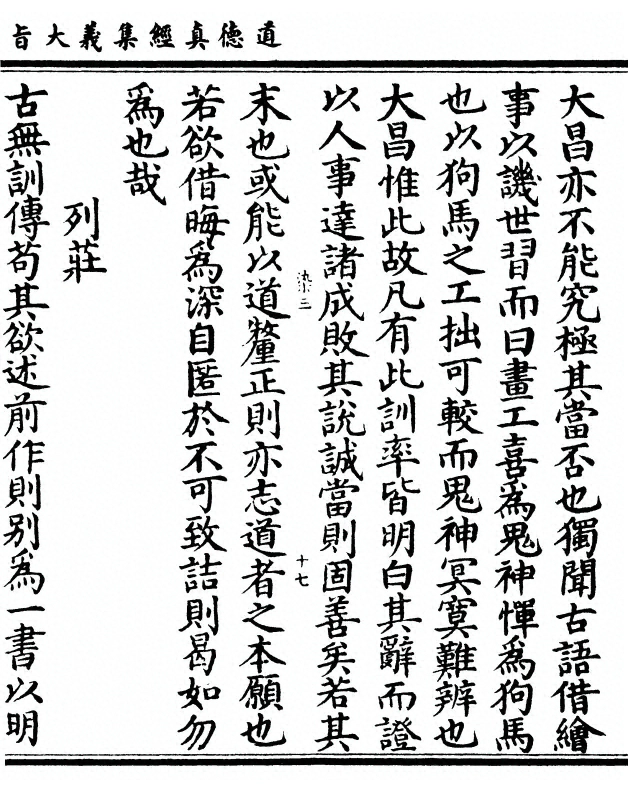 道德真經集義大旨
大昌亦不能究極其當否也獨聞古語借繪
事以譏世習而曰畫工喜爲鬼神憚爲狗馬
也以狗馬之工拙可較而鬼神冥寞難辨也
大昌惟此故凡有此訓率皆明白其辭而證
以人事達諸成敗其說誠當則固善矣若其
染十二
十七
末也或能以道釐正則亦志道者之本願也
若欲借晦爲深自匿於不可致詰則曷如勿
爲也哉
列莊
古無訓傳苟其欲述前作則别爲一書以明